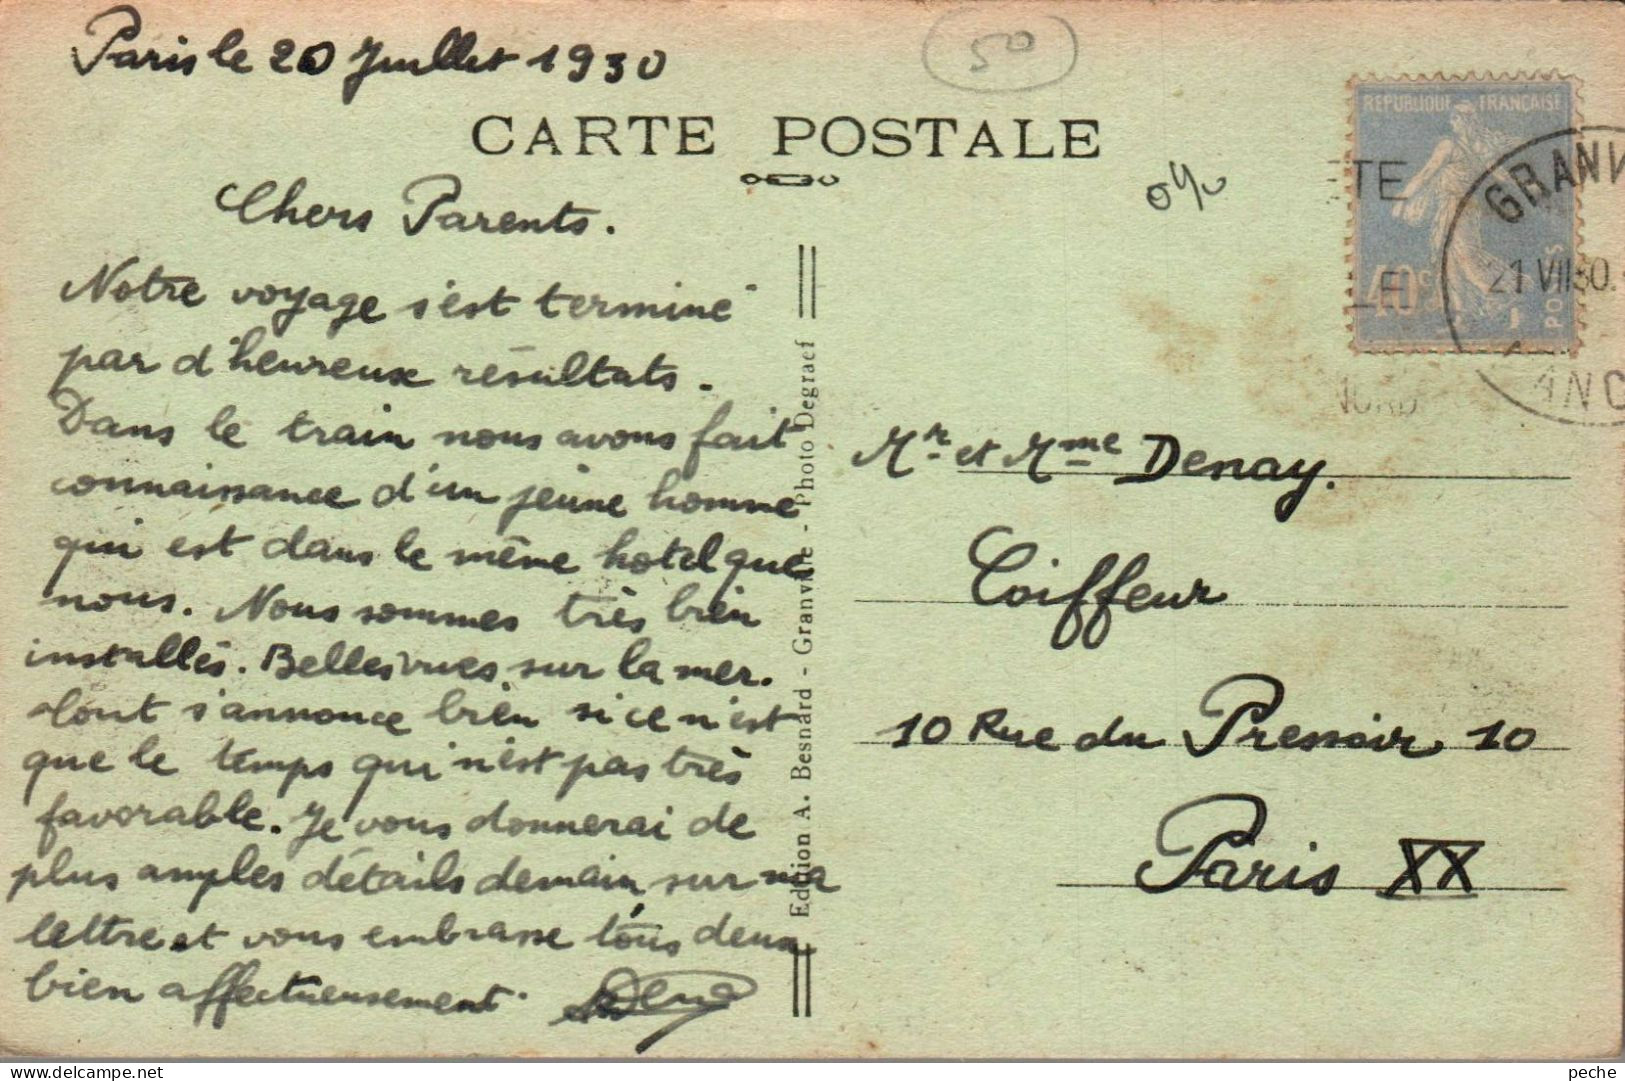 Paris le 20 Juillet 1930
50
CARTE POSTALE
Chers Parents.
Notre voyage s'est terminé
par d'heureux résultats.
Dans le train nous avons fait
connaissance d'un jeune homme
qui est dans le même hotel que
nous. Nous sommes très bien
installés. Belles vues sur la mer.
Tout s'annonce bien si ce n'est
que le temps qui n'est pas très
favorable. Je vous donnerai de
plus amples détails demain sur ma
lettre et vous embrasse tous deux
bien affectueusement
Edition A. Besnard - Granville - Photo Degraef
REPUBLIQUE FRANÇAISE
40c
POSTES
GRANV
21 VII 30
ANC
ETE
LE
NORD
Mr et Mme Denay.
Coiffeur
10 Rue du Pressoir 10
Paris XX
delcampe.net
peche